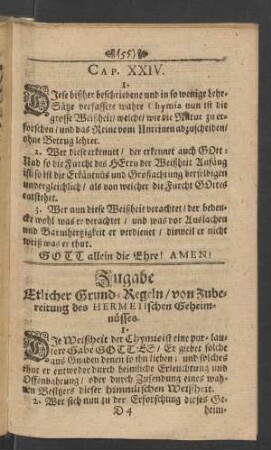 (55)
CAP. XXIV.
1.
DIese bißher beschriebene und in so wenige Lehr-
Sätze verfassete wahre Chymia nun ist die
grosse Weißheit/ welche/ wie die Natur zu er-
forschen/ und das Reine vom Unreinen abzuscheiden/
ohne Betrug lehret.
2. Wer diese erkennet/ der erkennet auch GOtt:
Und so die Furcht des HErrn der Weißheit Anfang
ist/ so ist die Erkäntnüs und Großachtung derselbigen
unvergleichlich/ als von welcher die Furcht GOttes
entstehet.
3. Wer nun diese Weißheit verachtet/ der beden-
cke wohl was er verachtet / und was vor Auslachen
und Barmhertzigkeit er verdienet / dieweil er nicht
weiß was er thut.
GOTT allein die Ehre! AMEN!
Zugabe
Etlicher Grund-Regeln/ von Zube-
reitung des HERMETischen Geheim-
nüsses.
1.
DIe Weißheit der Chymie ist eine pur-lau-
tere Gabe GOTTES/ Er giebet solche
aus Gnaden denen so ihn lieben: und solches
thut er entweder durch heimliche Erleuchtung und
Offenbahrung/ oder durch Zusendung eines wah-
ren Besitzers dieser himmlischen Weißheit.
2. Wer sich nun zu der Erforschung dieses Ge-
D 4 heim-